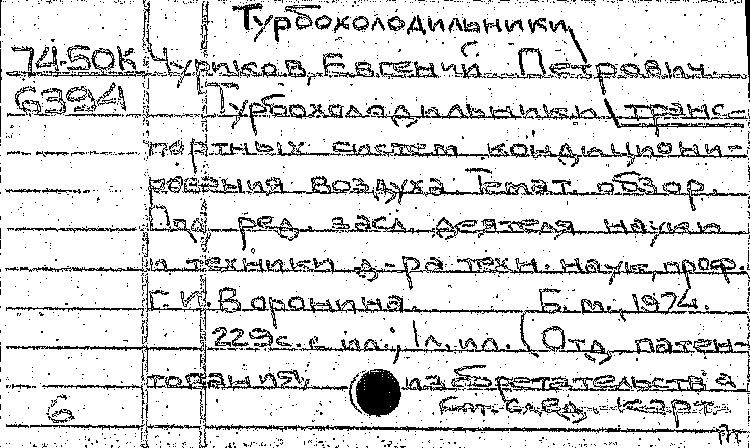 Турбохолодильники
74-50К Чуриков, Евгений Петрович.
6394 Турбохолодильники транс-
портных систем кондициони-
рования воздуха. Темат. обзор.
Под ред. засл. деятеля науки
и техники д-ра техн. наук, проф.
Г. И. Воронина. Б. м., 1974.
229 с. с ил.; 1 л. ил. (Отд. патен-
тования, изобретательства
6 См. след. карт.